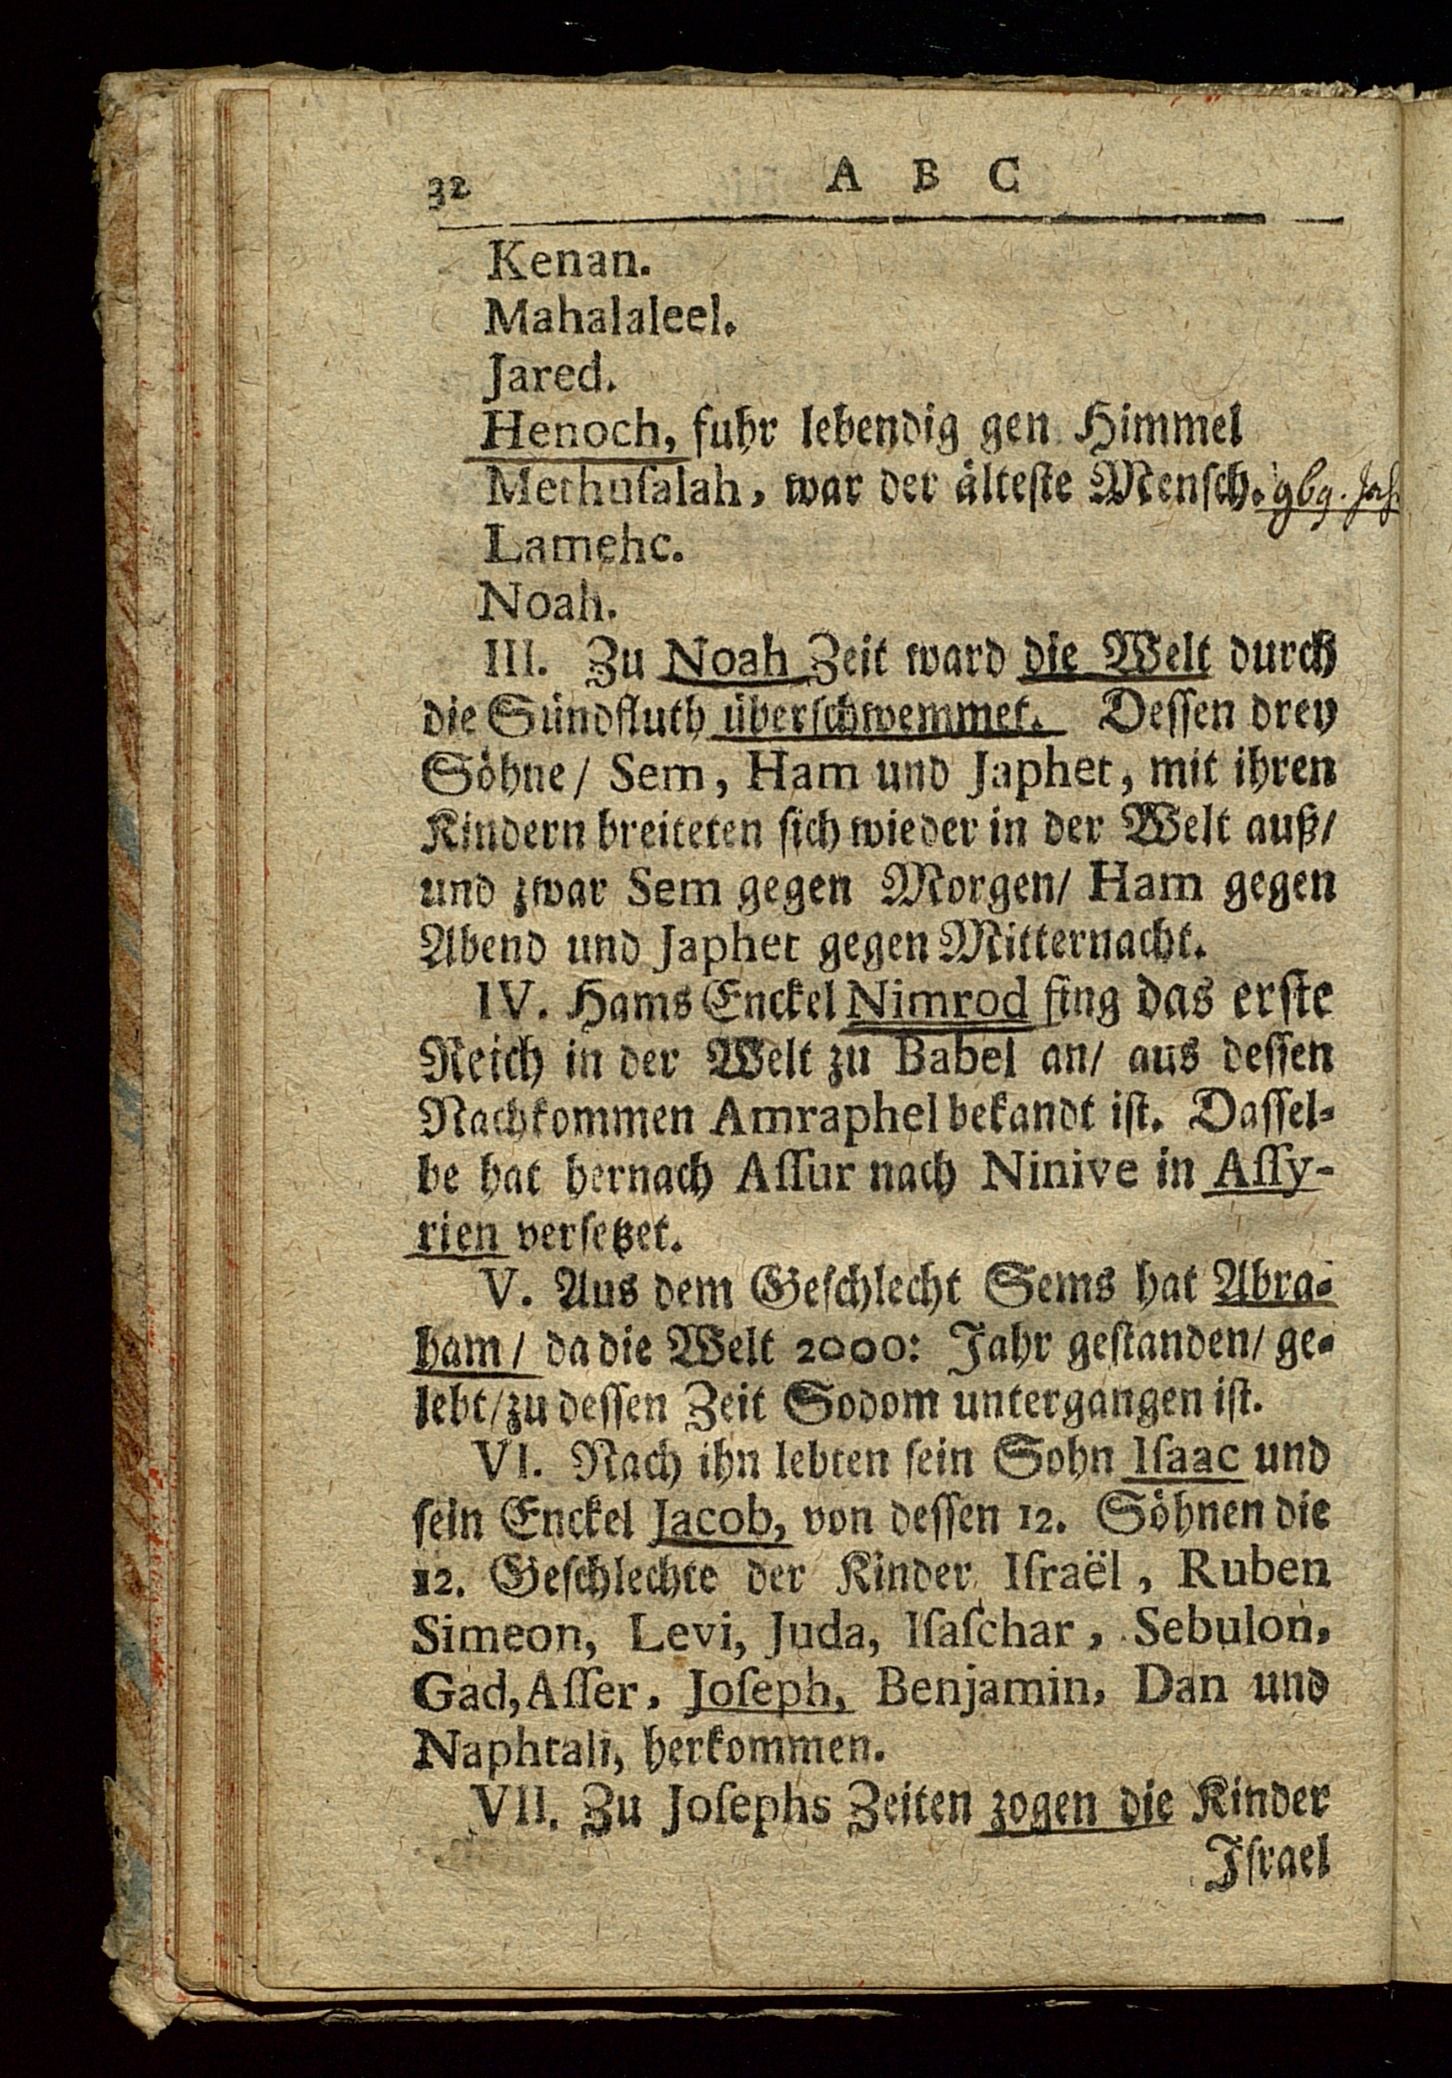 32 A B C
Kenan.
Mahalaleel.
Jared.
Henoch, fuhr lebendig gen Himmel
Methuſalah, war der älteſte Menſch. 969. Jah
Lamehc.
Noah.
III. Zu Noah Zeit ward die Welt durch
die Sündfluth überſchwemmet. Deſſen drey
Söhne/ Sem, Ham und Japhet, mit ihren
Kindern breiteten ſich wieder in der Welt auß/
und zwar Sem gegen Morgen/ Ham gegen
Abend und Japhet gegen Mitternacht.
IV. Hams Enckel Nimrod fing das erſte
Reich in der Welt zu Babel an/ aus deſſen
Nachkommen Amraphel bekandt iſt. Daſſel-
be hat hernach Aſſur nach Ninive in Aſſy-
rien verſetzet.
V. Aus dem Geſchlecht Sems hat Abra-
ham/ da die Welt 2000: Jahr geſtanden/ ge-
lebt/ zu deſſen Zeit Sodom untergangen iſt.
VI. Nach ihn lebten ſein Sohn Iſaac und
ſein Enckel Jacob, von deſſen 12. Söhnen die
12. Geſchlechte der Kinder Iſraël, Ruben
Simeon, Levi, Juda, Iſaſchar, Sebulon,
Gad, Aſſer, Joſeph, Benjamin, Dan und
Naphtali, herkommen.
VII. Zu Joſephs Zeiten zogen die Kinder
Iſrael